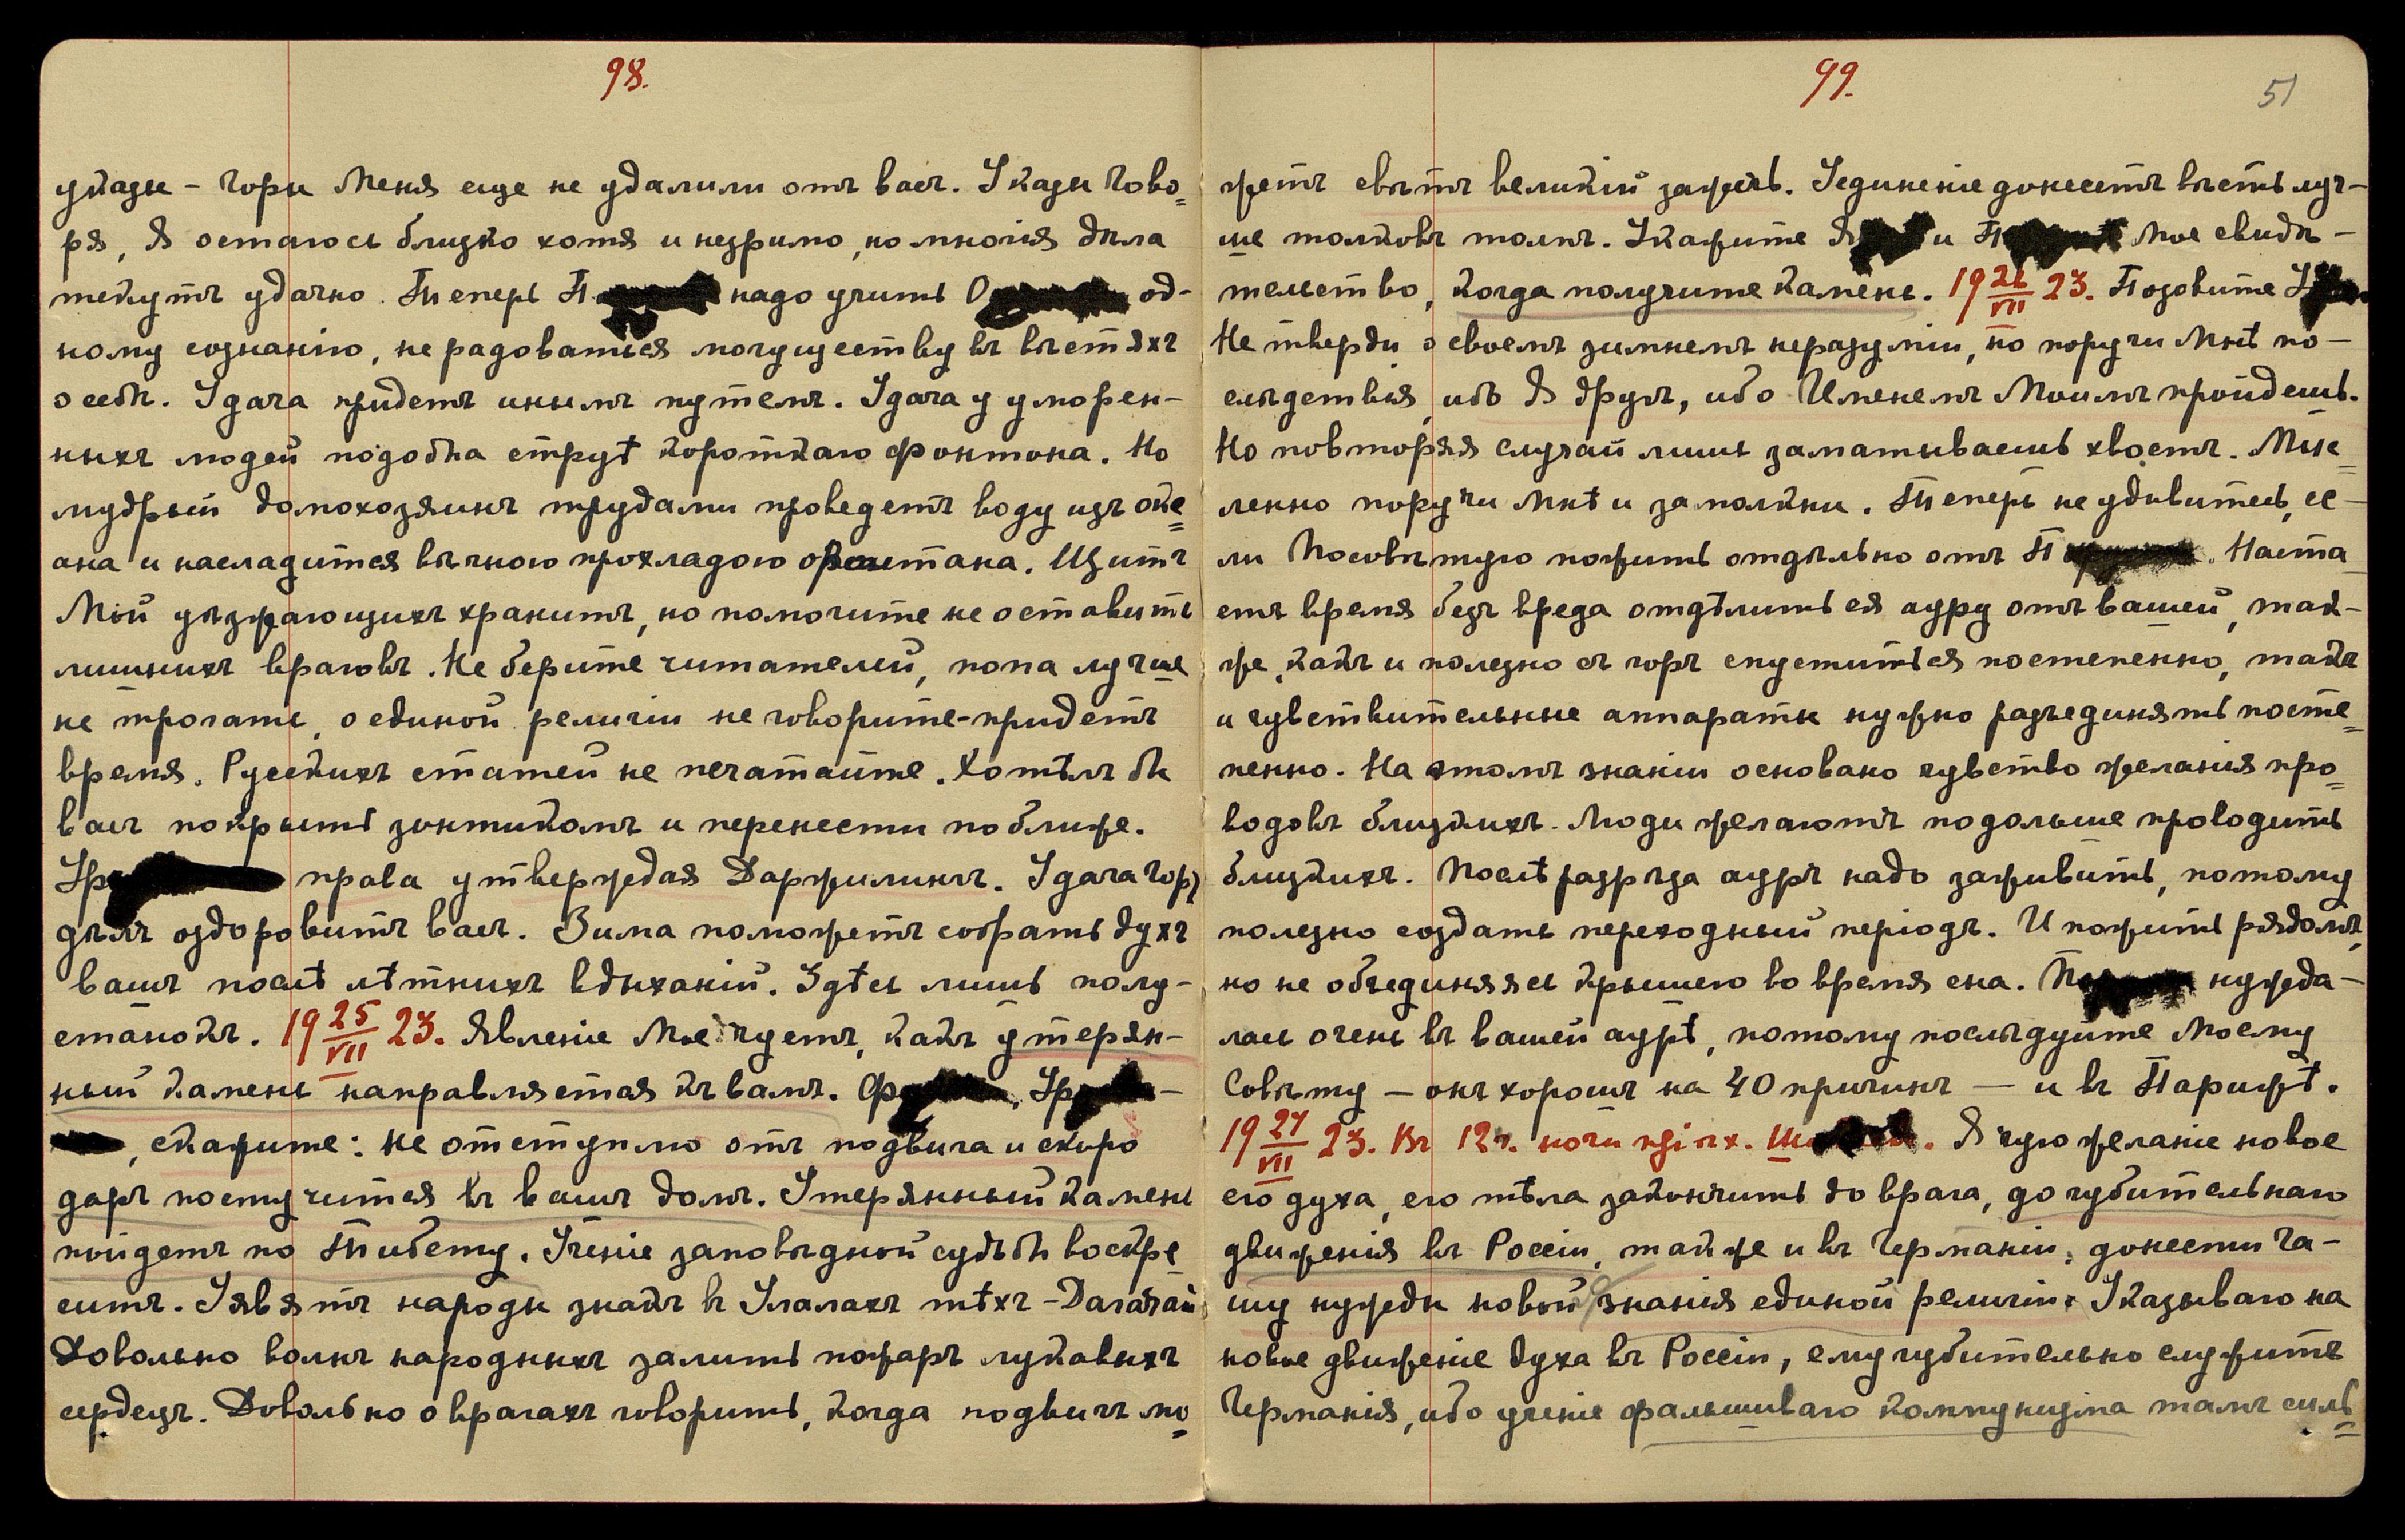 98.
укажи – горы Меня еще не удалили отъ васъ. Укажи гово=
ря, Я остаюсь близко хотя и незримо, но многія дѣла
текутъ удачно. Теперь П надо учить О од-
ному сознанію, не радоваться могуществу въ вѣстяхъ
о себѣ. Удача придетъ инымъ путемъ. Удача у уморен-
ныхъ людей подобна струѣ короткаго фонтана. Но
мудрый домохозяинъ трудами проведетъ воду изъ оке=
ана и насладится вѣчною прохладою фонтана. Щитъ
Мой уѣзжающихъ хранитъ, но помогите не оставить
лишнихъ враговъ. Не берите читателей, попа лучше
не трогать, о единой религіи не говорите-придетъ
время. Русскихъ статей не печатайте. Хотѣлъ бы
васъ покрыть зонтикомъ и перенести поближе.
Ур права утверждая Даржилингъ. Удача
дѣлъ оздоровитъ васъ. Зима поможетъ собрать духъ
вашъ послѣ лѣтнихъ вдыханій. Здѣсь лишь полу-
станокъ. 19 25/VII 23. Явленіе Мое чуетъ, какъ утерян-
ный камень направляется къ вамъ. Ф, Ур-
, скажите: не отступлю отъ подвига и скоро
даръ постучится въ вашъ домъ. Утерянный камень
пойдетъ по Тибету. Ученіе заповѣдной судьбы воскре=
ситъ. Уявятъ народы знакъ въ Уламахъ тѣхъ –
Довольно волнъ народныхъ залить пожаръ лукавыхъ
сердецъ. Довольно о врагахъ говорить, когда подвигъ мо=
99.
51
жетъ свѣтъ великій зажечь. Уединеніе донесетъ вѣсть луч-
ше толковъ толпъ. Укажите Я и П Мое свидѣ-
тельство, когда получите камень. 19 26/VII 23. Позовите У
Не тверди о своемъ зимнемъ неразуміи, но поручи Мнѣ по-
слѣдствія, ибо Я другъ, ибо Именемъ Моимъ пройдешь.
Но повторяя случай лишь заматываешь хвостъ. Мыс=
ленно поручи Мнѣ и замолкни. Теперь не удивитесь, ес-
ли Посовѣтую пожить отдѣльно отъ П. Наста-
етъ время безъ вреда отдѣлить ея ауру отъ вашей, так-
же, какъ и полезно съ горъ спуститься постепенно, такъ
и чувствительные аппараты нужно разъединять посте=
пенно. На этомъ знаніи основано чувство желанія про=
водовъ близкихъ. Люди желаютъ подольше проводить
близкихъ. Послѣ разрѣза ауръ надо заживить, потому
полезно создать переходный періодъ. И пожить рядомъ,
но не объединяясь крышею во время сна. П нужда-
лась очень въ вашей аурѣ, потому послѣдуйте Моему
Совѣту – онъ хорошъ на 40 причинъ – и въ Парижѣ.
19 27/VII 23. Въ 12ч. ночи Ш. Я чую желаніе новое
его духа, его тѣла закончить до врага, до губительнаго
движенія въ Россіи, также и въ Германіи, донести Ча-
шу нужды новой знанія единой религіи. Указываю на
новое движеніе духа въ Россіи, ему губительно служитъ
Германія, ибо ученіе фальшиваго коммунизма тамъ силь=